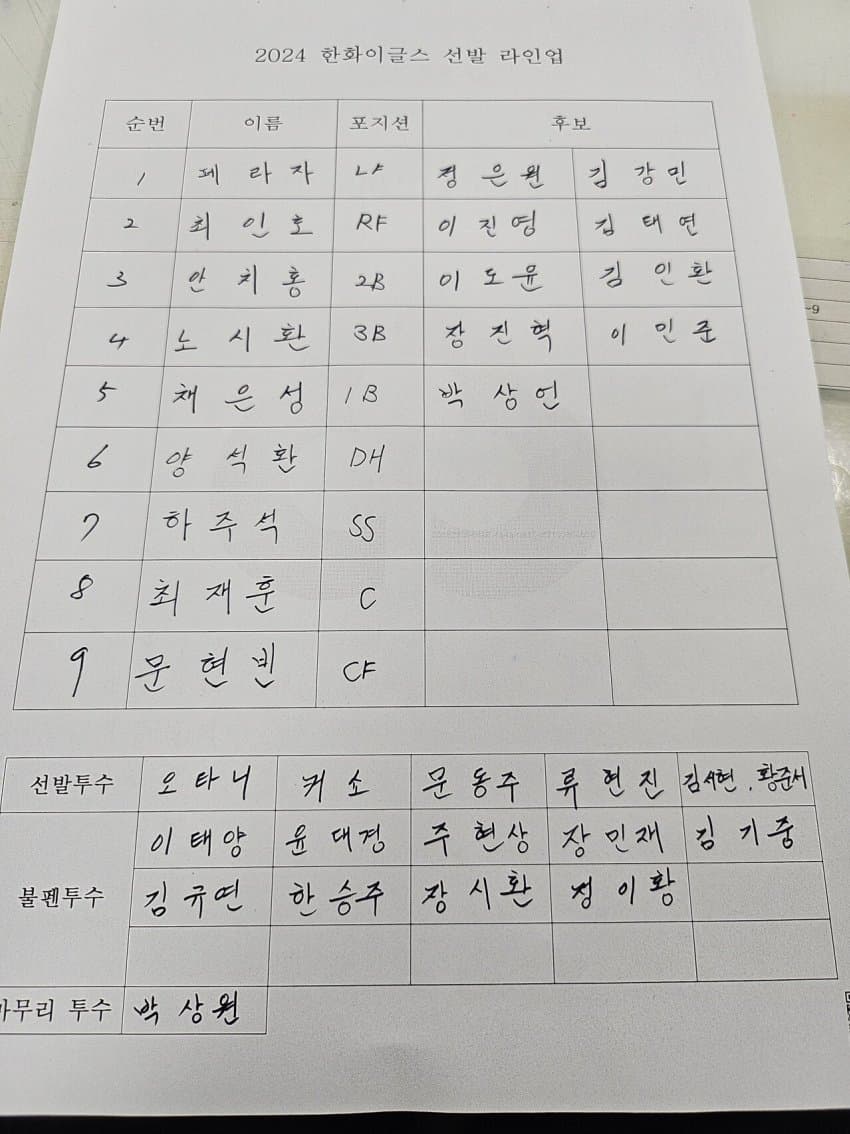 2024 한화이글스 선발 라인업
순번 이름 포지션 후보
1 페라자 LF 정은원 김강민
2 최인호 RF 이진영 김태연
3 안치홍 2B 이도윤 김인환
4 노시환 3B 장진혁 이민준
5 채은성 1B 박상언
6 양석환 DH
7 하주석 SS
8 최재훈 C
9 문현빈 CF
선발투수 오타니 커쇼 문동주 류현진 김서현, 황준서
이태양 윤대경 주현상 장민재 김기중
불펜투수 김규연 한승주 장시환 정이황
마무리 투수 박상원
~9